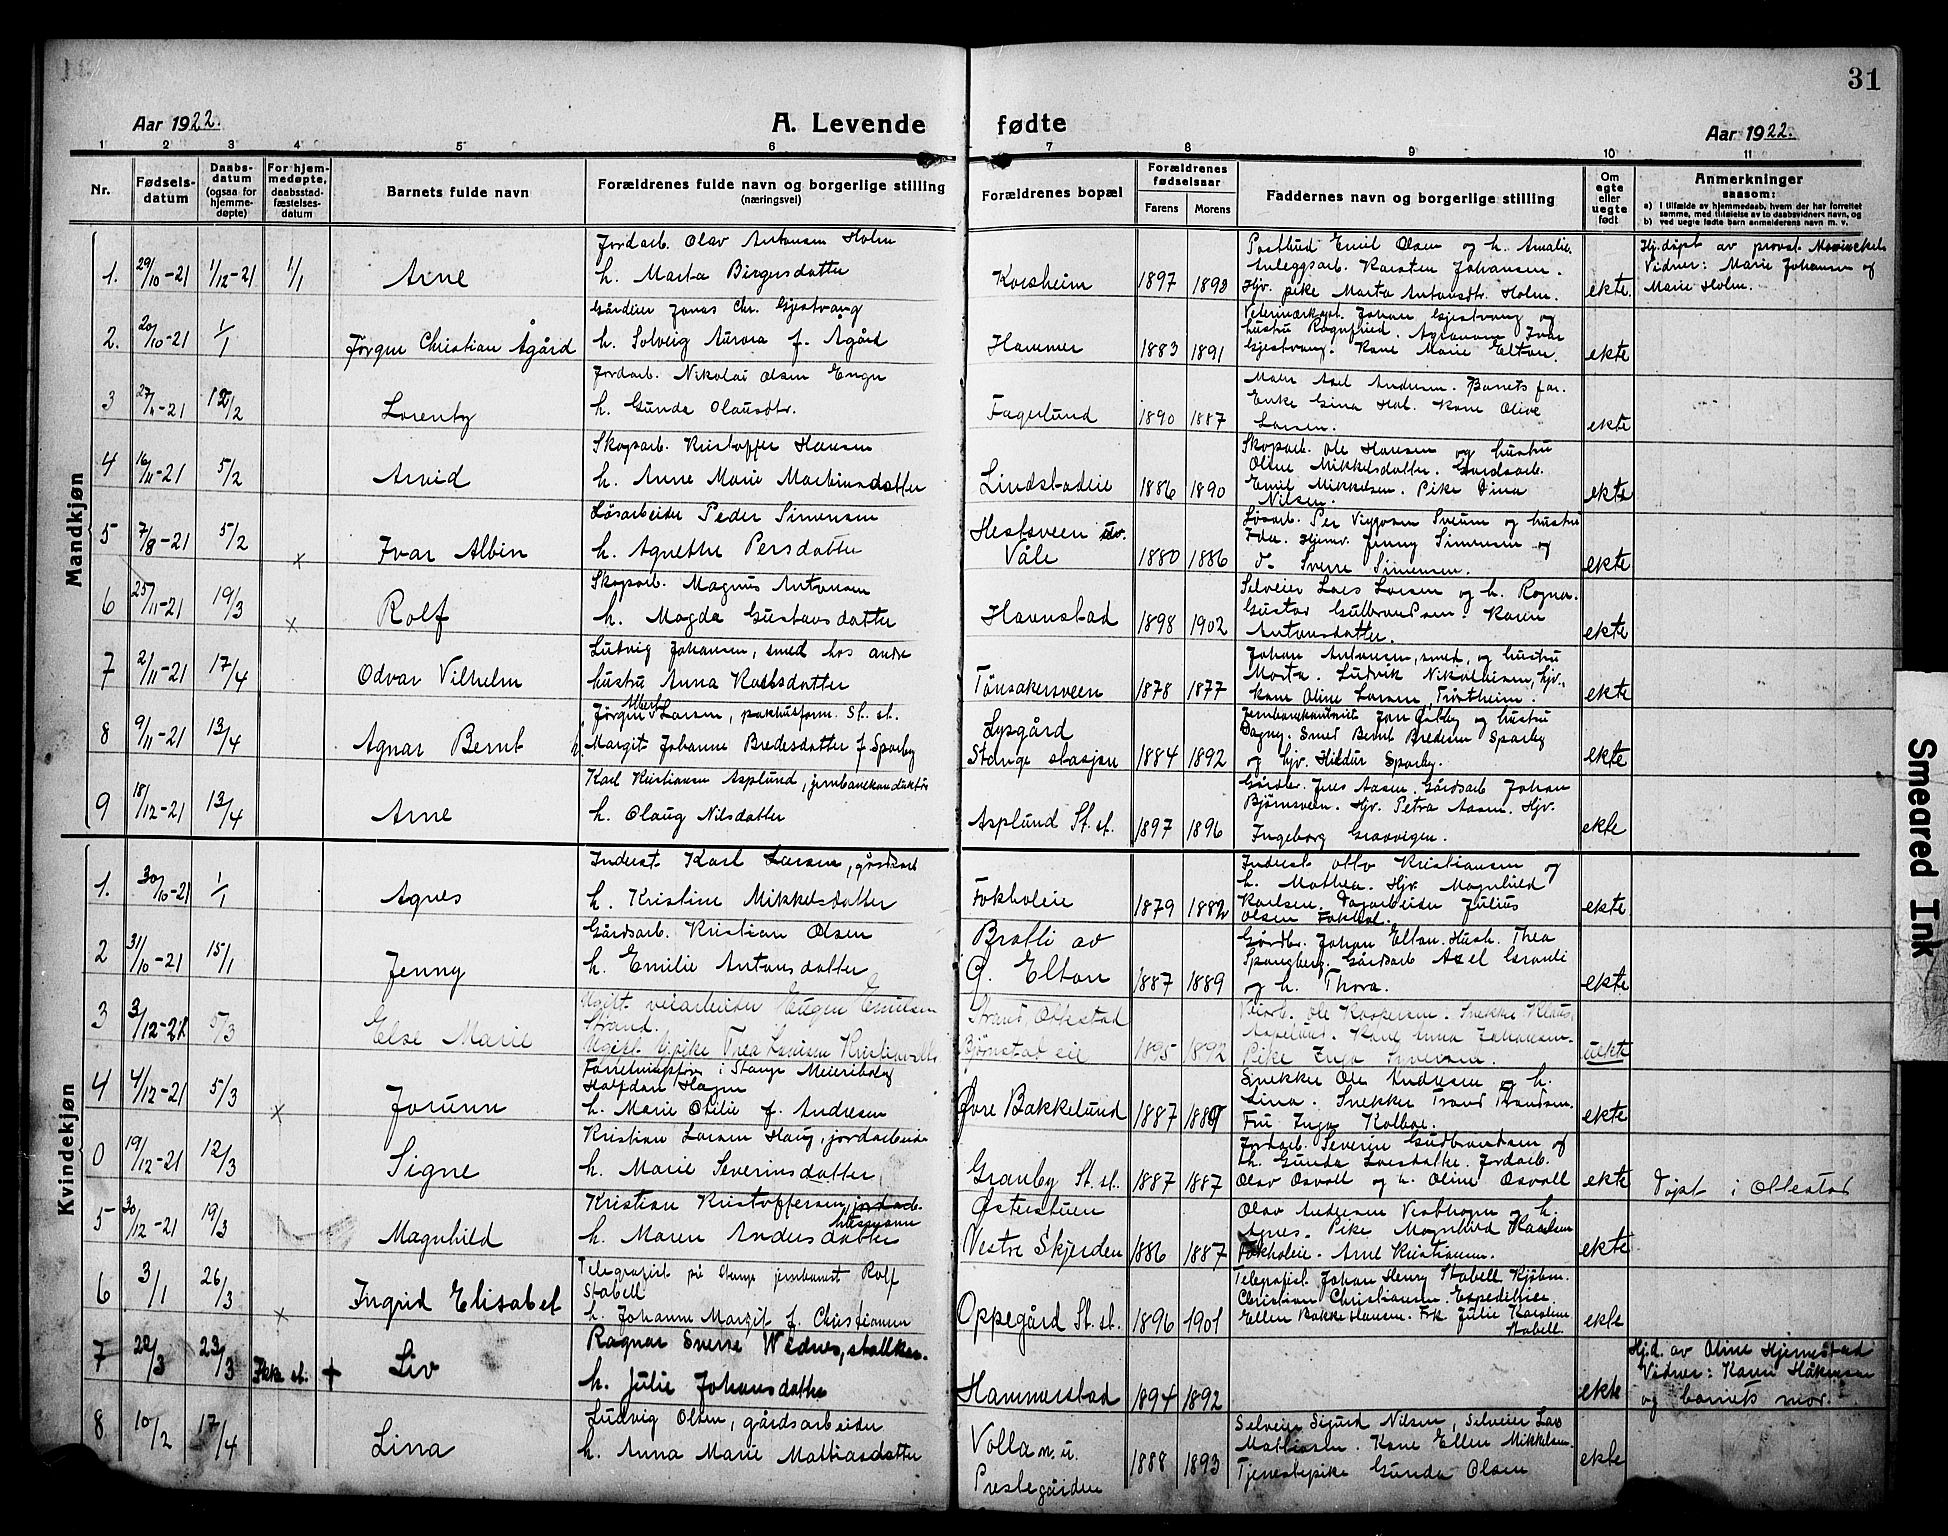 31
Aar 1922.
A. Levende fødte
Aar 1922.
1 2 3 4 5 6 7 8 9 10 11
Nr.
Fødsels-
datum
Daabs-
datum
(ogsaa for
hjemme-
døpte)
For hjem-
medøpte,
daabsstad-
fæstelses-
datum
Barnets fulde navn
Forældrenes fulde navn og borgerlige stilling
(næringsvei)
Forældrenes bopæl
Forældrenes
fødselsaar
Farens
Morens
Faddernes navn og borgerlige stilling
Om
egte
eller
uegte
født
Anmerkninger
saasom:
a) I tilfælde av hjemmedaab, hvem der har forrettet
samme, med tilføielse av to daabsvidners navn, og
b) ved uegte fødte barn anmelderens navn m. v.
Mandkjøn
1. 29/10-21 1/12-21 1/1 Arne
Jordarb. Olav Antonsen Holm
h. Marta Birgersdatter
Korsheim 1897 1893
Postbud Emil Olsen og h. Amalie.
Anleggsarb. Karsten Johansen.
Hjv. pike Marta Antonsdtr. Holm.
ekte.
Hj.døpt av provst
Vidner: Marie Johansen og
Marie Holm.
2. 20/10-21 1/1 Jørgen Christian Ågård
Gårdeier Jonas Chr. Gjestvang
h. Solveig Aurora f. Ågård
Hammer 1883 1891
Veterinærkapt. Johan Gjestvang og
hustru Ragnfried. Agronom Ivar
Gjestvang. Kone Marie Elton.
ekte
3 27/11-21 12/2 Lorenty
Jordarb. Nikolai Olsen Engen
h. Gunda Olausdtr.
Fagerlund 1890 1887
Maler Axel Andersen. Barnets far.
Enke Gina Hol. Kone Olive
Larsen.
ekte
4 16/11-21 5/2 Arvid
Skogsarb. Kristoffer Hansen
h. Anne Marie Martinusdatter
Lindstadeie 1886 1890
Skogsarb. Ole Hansen og hustru
Oline Mikkelsdatter. Gårdsarb.
Emil Mikkelsen. Pike Dina
Nilsen.
ekte
5 7/8-21 5/2 x Ivar Albin
Løsarbeider Peder Simensen
h. Agnethe Persdatter
Hestsveen
Våle 1880 1886
Løsarb. Per Viggosen Sveum og hustru
Ida. Hjemv. Jenny Simensen og
Sverre Simensen.
ekte
6 25/11-21 19/3 x Rolf
Skogsarb. Magnus Antonsen
h. Magda Gustavsdatter
Havnstad 1898 1902
Selveier Lars Larsen og h. Ragna.
Gustav Gulbrandsen. Karen
Antonsdatter.
ekte
7 2/11-21 17/4 Odvar Vilhelm
Ludvig Johansen, smed hos andre
hustru Anna Karlsdatter
Tønsakersveen 1878 1877
Johan Antonsen, smed, og hustru
Marta. Ludvik Nikolaisen, hjv.,
kone Oline Larsen, Trøstheim.
ekte
8 9/11-21 13/4 Agnar Bernt
Albert
Jørgen Larsen, pakhusform. St. st.
h. Margit Johanne Bredesdatter f. Sparby
Lysgård
Stange stasjon 1884 1892
Jernbanekontorist Jon Østby og hustru
Dagny. Smed Bernt Bredesen Sparby
og hjv. Hildur Sparby.
ekte
9 18/12-21 13/4 Arne
Karl Kristiansen Asplund, jernbanekonduktør
h. Olaug Nilsdatter
Asplund St. st. 1897 1896
Gårdbr. Jens Aasen. Gårdsarb Johan
Bjørnsveen. Hjv. Petra Aasen. Hjv.
Ingeborg Gravvigen.
ekte
Kvindekjøn
1. 30/10-21 1/1 Agnes
Inderst. Karl Larsen, gårdsarb
h. Kristine Mikkelsdatter
Fokholeie 1879 1882
Inderst Otto Kristiansen og
h. Mathea. Hjv. Magnhild
Karlsen. Dagarbeider Julius
Olsen Fokhol.
ekte
2 31/10-21 15/1 Jenny
Gårdsarb. Kristian Olsen
h. Emilie Antonsdatter
Bratli av
Elton 1887 1889
Gårdbr. Johan Elton. Hush. Thea
Spangberg. Gårdsarb Axel Granli
og h. Thora.
ekte
3 3/12-21 5/3 Else Marie
Ugift veiarbeider Eugen Emilsen
Strand.
Ugift pike Thea Lovisen
Strand, Ottestad
Bjørnstad eie 1895 1892
Veiarb. Ole Snekker
Kone Anna Johansen
Pike Inga
uekte
4 4/12-21 5/3 x Jorunn
i Stange Meieribolag
Halfdan Hagen
h. Marie Otilie f. Andresen
Øvre Bakkelund 1887 1889
Snekker Ole Andresen og h.
Lina. Snekker Trond Trondsen.
Fru Inga Kolboe.
ekte
0 19/12-21 12/3 Signe
Kristian Larsen Haug, jordarbeider
h. Marie Severinsdatter
Granby St. st. 1887 1887
Jordarb. Severin Gudbrandsen og
h. Gunda Larsdatter. Jordarb.
Olav Osvoll og h. Oline Osvoll
ekte
Døpt i Ottestad
5 30/12-21 19/3 Magnhild
Kristian Kristoffersen, jordarb.
husmann
h. Maren Andersdatter
Østerstuen
Vestre Skjerden 1886 1887
Olav Andersen Vesthagen og h.
Agnes. Pike Magnhild Karlsen
Fokholeie. Arne Kristiansen.
ekte
6 3/1 26/3 x Ingrid Elisabet
Telegrafist på Stange jernbanest Rolf
Stabell
h. Johanne Margit f. Christiansen
Oppegård St. st. 1896 1901
Telegrafist Johan Henry Stabell. Kjøbm.
Christian Christiansen. Expeditrice
Ellen Bakke Hansen. Frk Julie Karoline
Stabell.
ekte
7 22/3 23/3 Ikke st. + Liv
Ragnar Sverre Wednes, stallkar.
h. Julie Johansdatter
Hammerstad 1894 1892
ekte
Hj.d. av Oline Hjemstad
Vidner: Karen Håkensen
og barnets mor.
8 10/2 17/4 Lina
Ludvig Olsen, gårdsarbeider
h. Anna Marie Mathiasdatter
Volla n. u.
Prestegården 1888 1893
Selveier Sigurd Nilsen, Selveier Lars
Mathiasen. Kone Ellen Mikkelsen.
Tjenestepike Gunda Olsen
ekte
Smeared Ink